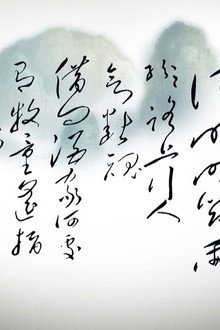 清明时节雨
纷纷路上行人
欲断魂
借问酒家何处
有牧童遥指